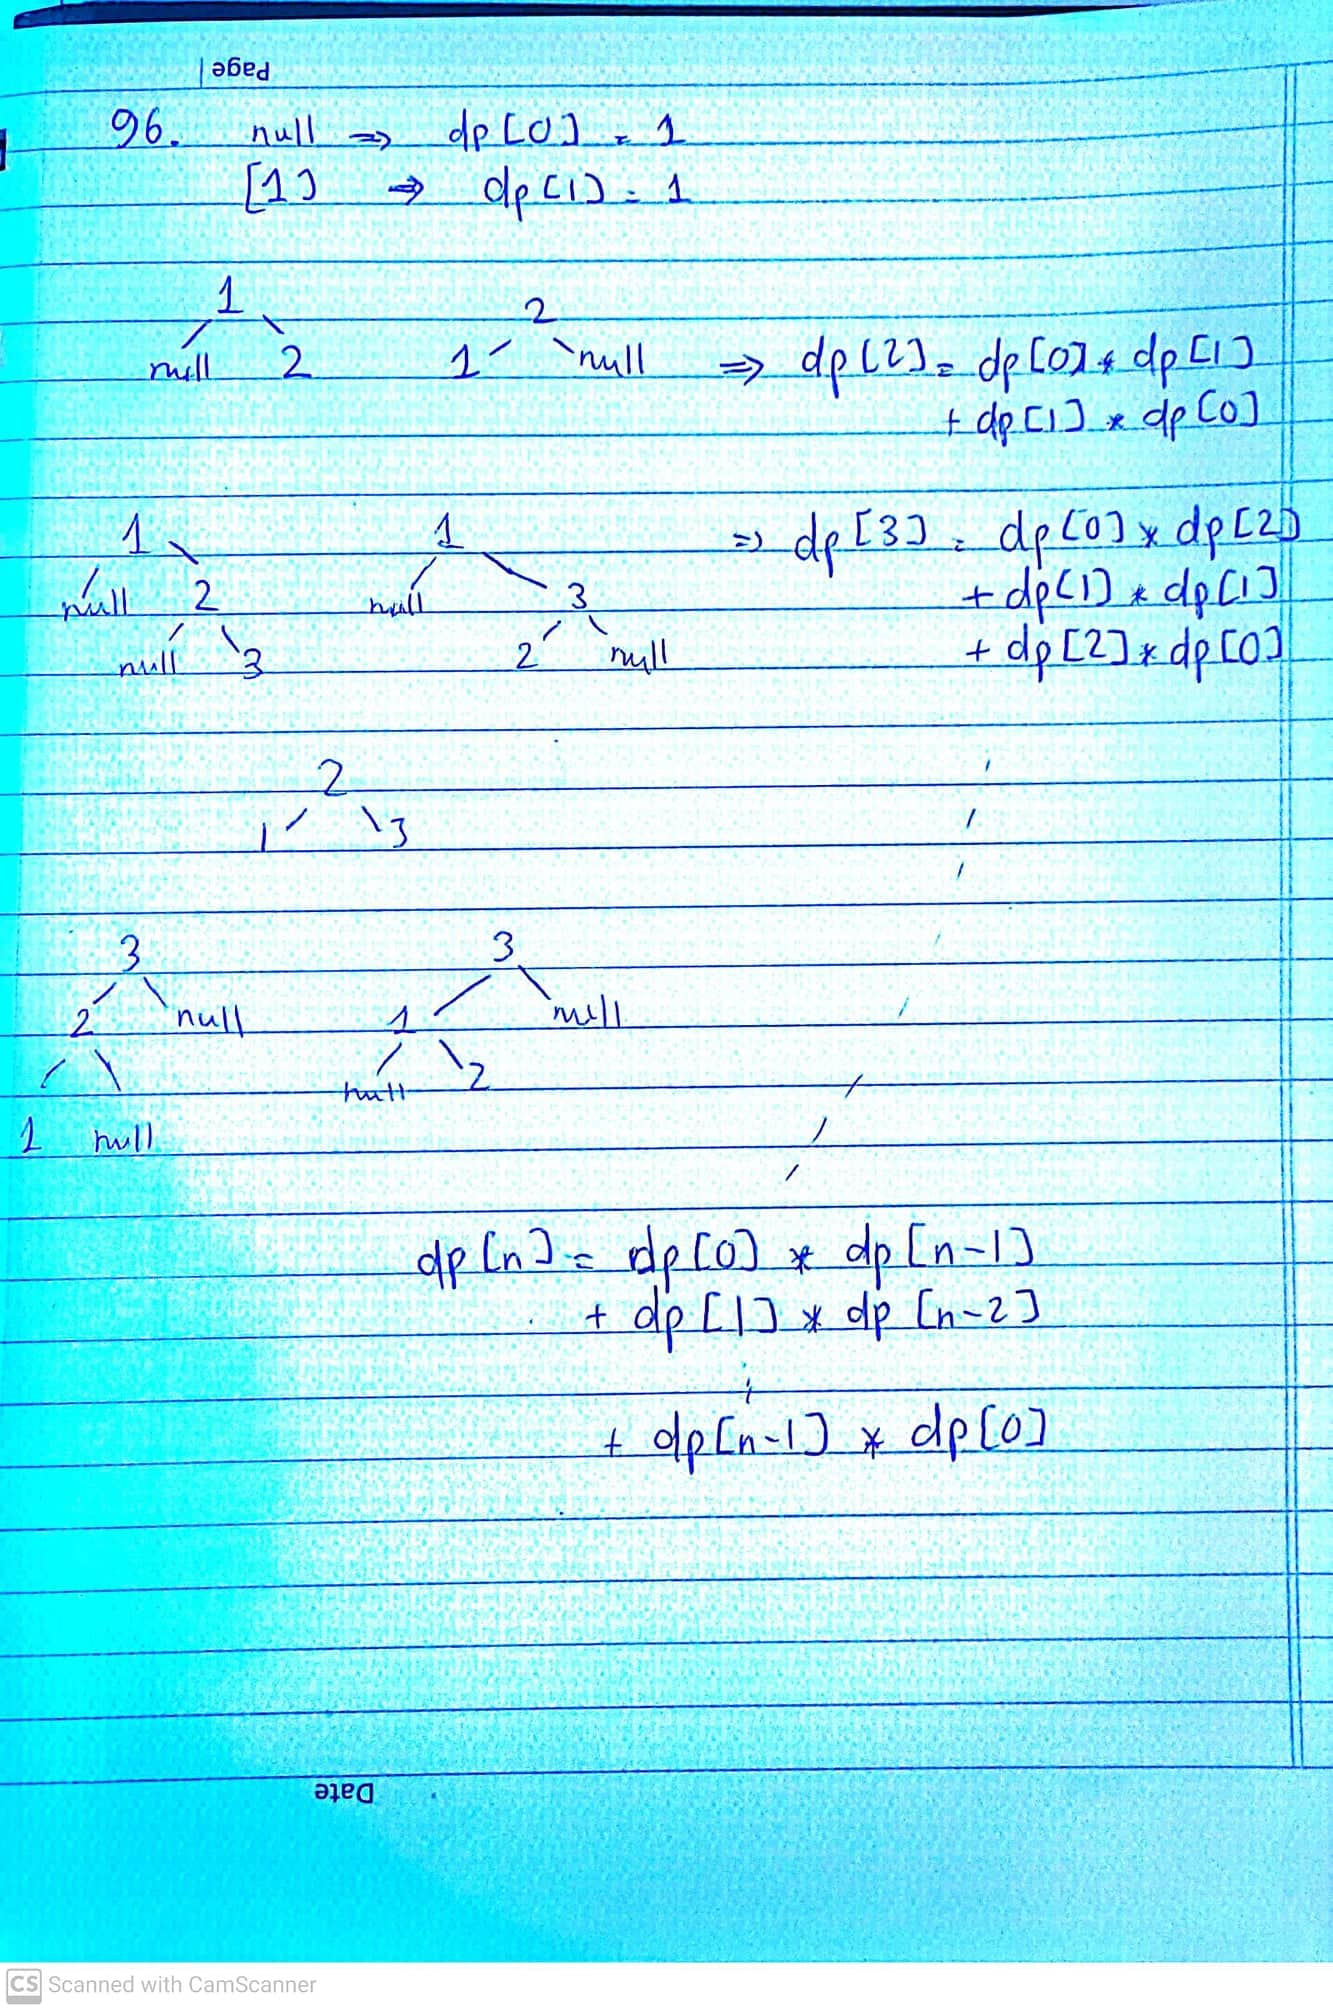 Page
96. null ⇒ dp[0] = 1
[1] ⇒ dp[1] = 1
1
null 2
2
1 null
⇒ dp[2] = dp[0] * dp[1]
+ dp[1] * dp[0]
1
null 2
null 3
1
null 3
2 null
⇒ dp[3] = dp[0] * dp[2]
+ dp[1] * dp[1]
+ dp[2] * dp[0]
2
1 3
3
2 null
1 null
3
1 null
null 2
dp[n] = dp[0] * dp[n-1]
+ dp[1] * dp[n-2]
⋮
+ dp[n-1] * dp[0]
Date
CS Scanned with CamScanner